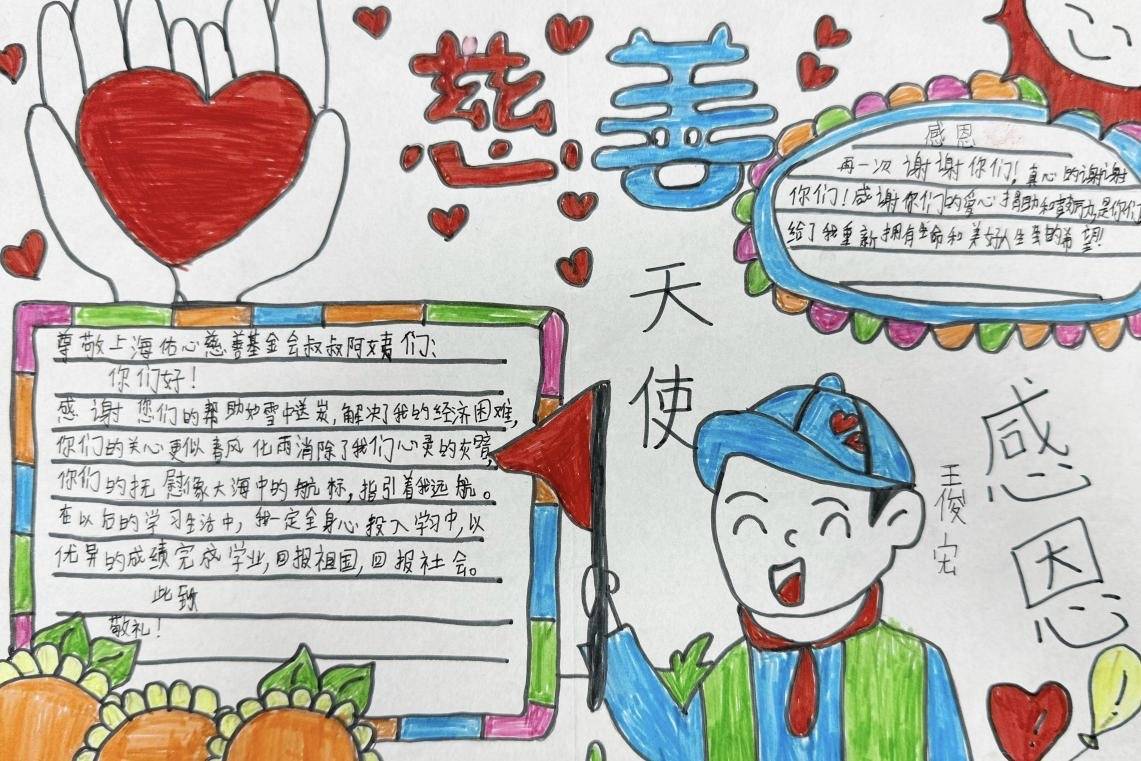 慈善
天使
感恩
再一次谢谢你们！真心的谢谢
你们！感谢你们的爱心捐助和鼓励，是你们
给了我重新拥有生命和美好人生的希望！
尊敬上海佑心慈善基金会叔叔阿姨们：
你们好！
感谢您们的帮助如雪中送炭，解决了我的经济困难，
你们的关心更似春风化雨消除了我们心灵的灰
你们的抚慰像大海中的航标，指引着我远航。
在以后的学习生活中，我一定全身心投入学习中，以
优异的成绩完成学业，回报祖国，回报社会。
此致
敬礼！
王俊宏
感恩